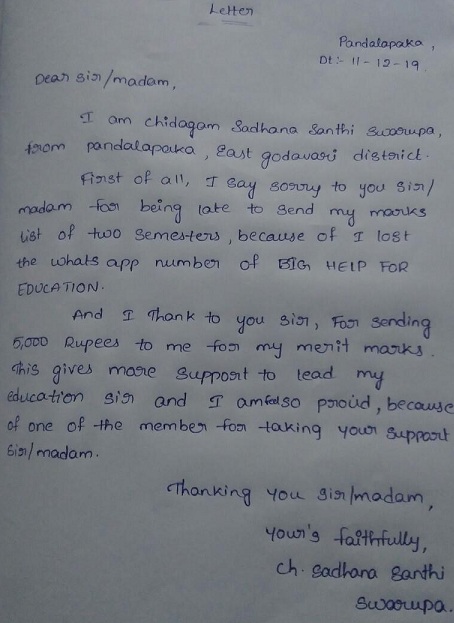 Letter
Pandalapaka,
Dt:- 11-12-19.
Dear sir/madam,
I am chidagam Sadhana Santhi Swarupa,
from pandalapaka, East godavari district.
First of all, I say sorry to you sir/
madam for being late to send my marks
list of two semesters, because of I lost
the whats app number of BIG HELP FOR
EDUCATION.
And I Thank to you sir, For sending
5,000 Rupees to me for my merit marks.
This gives more support to lead my
education sir and I am feel so proud, because
of one of the member for taking your support
sir/madam.
Thanking you sir/madam,
your's faithfully,
Ch. Sadhana Santhi
Swarupa.